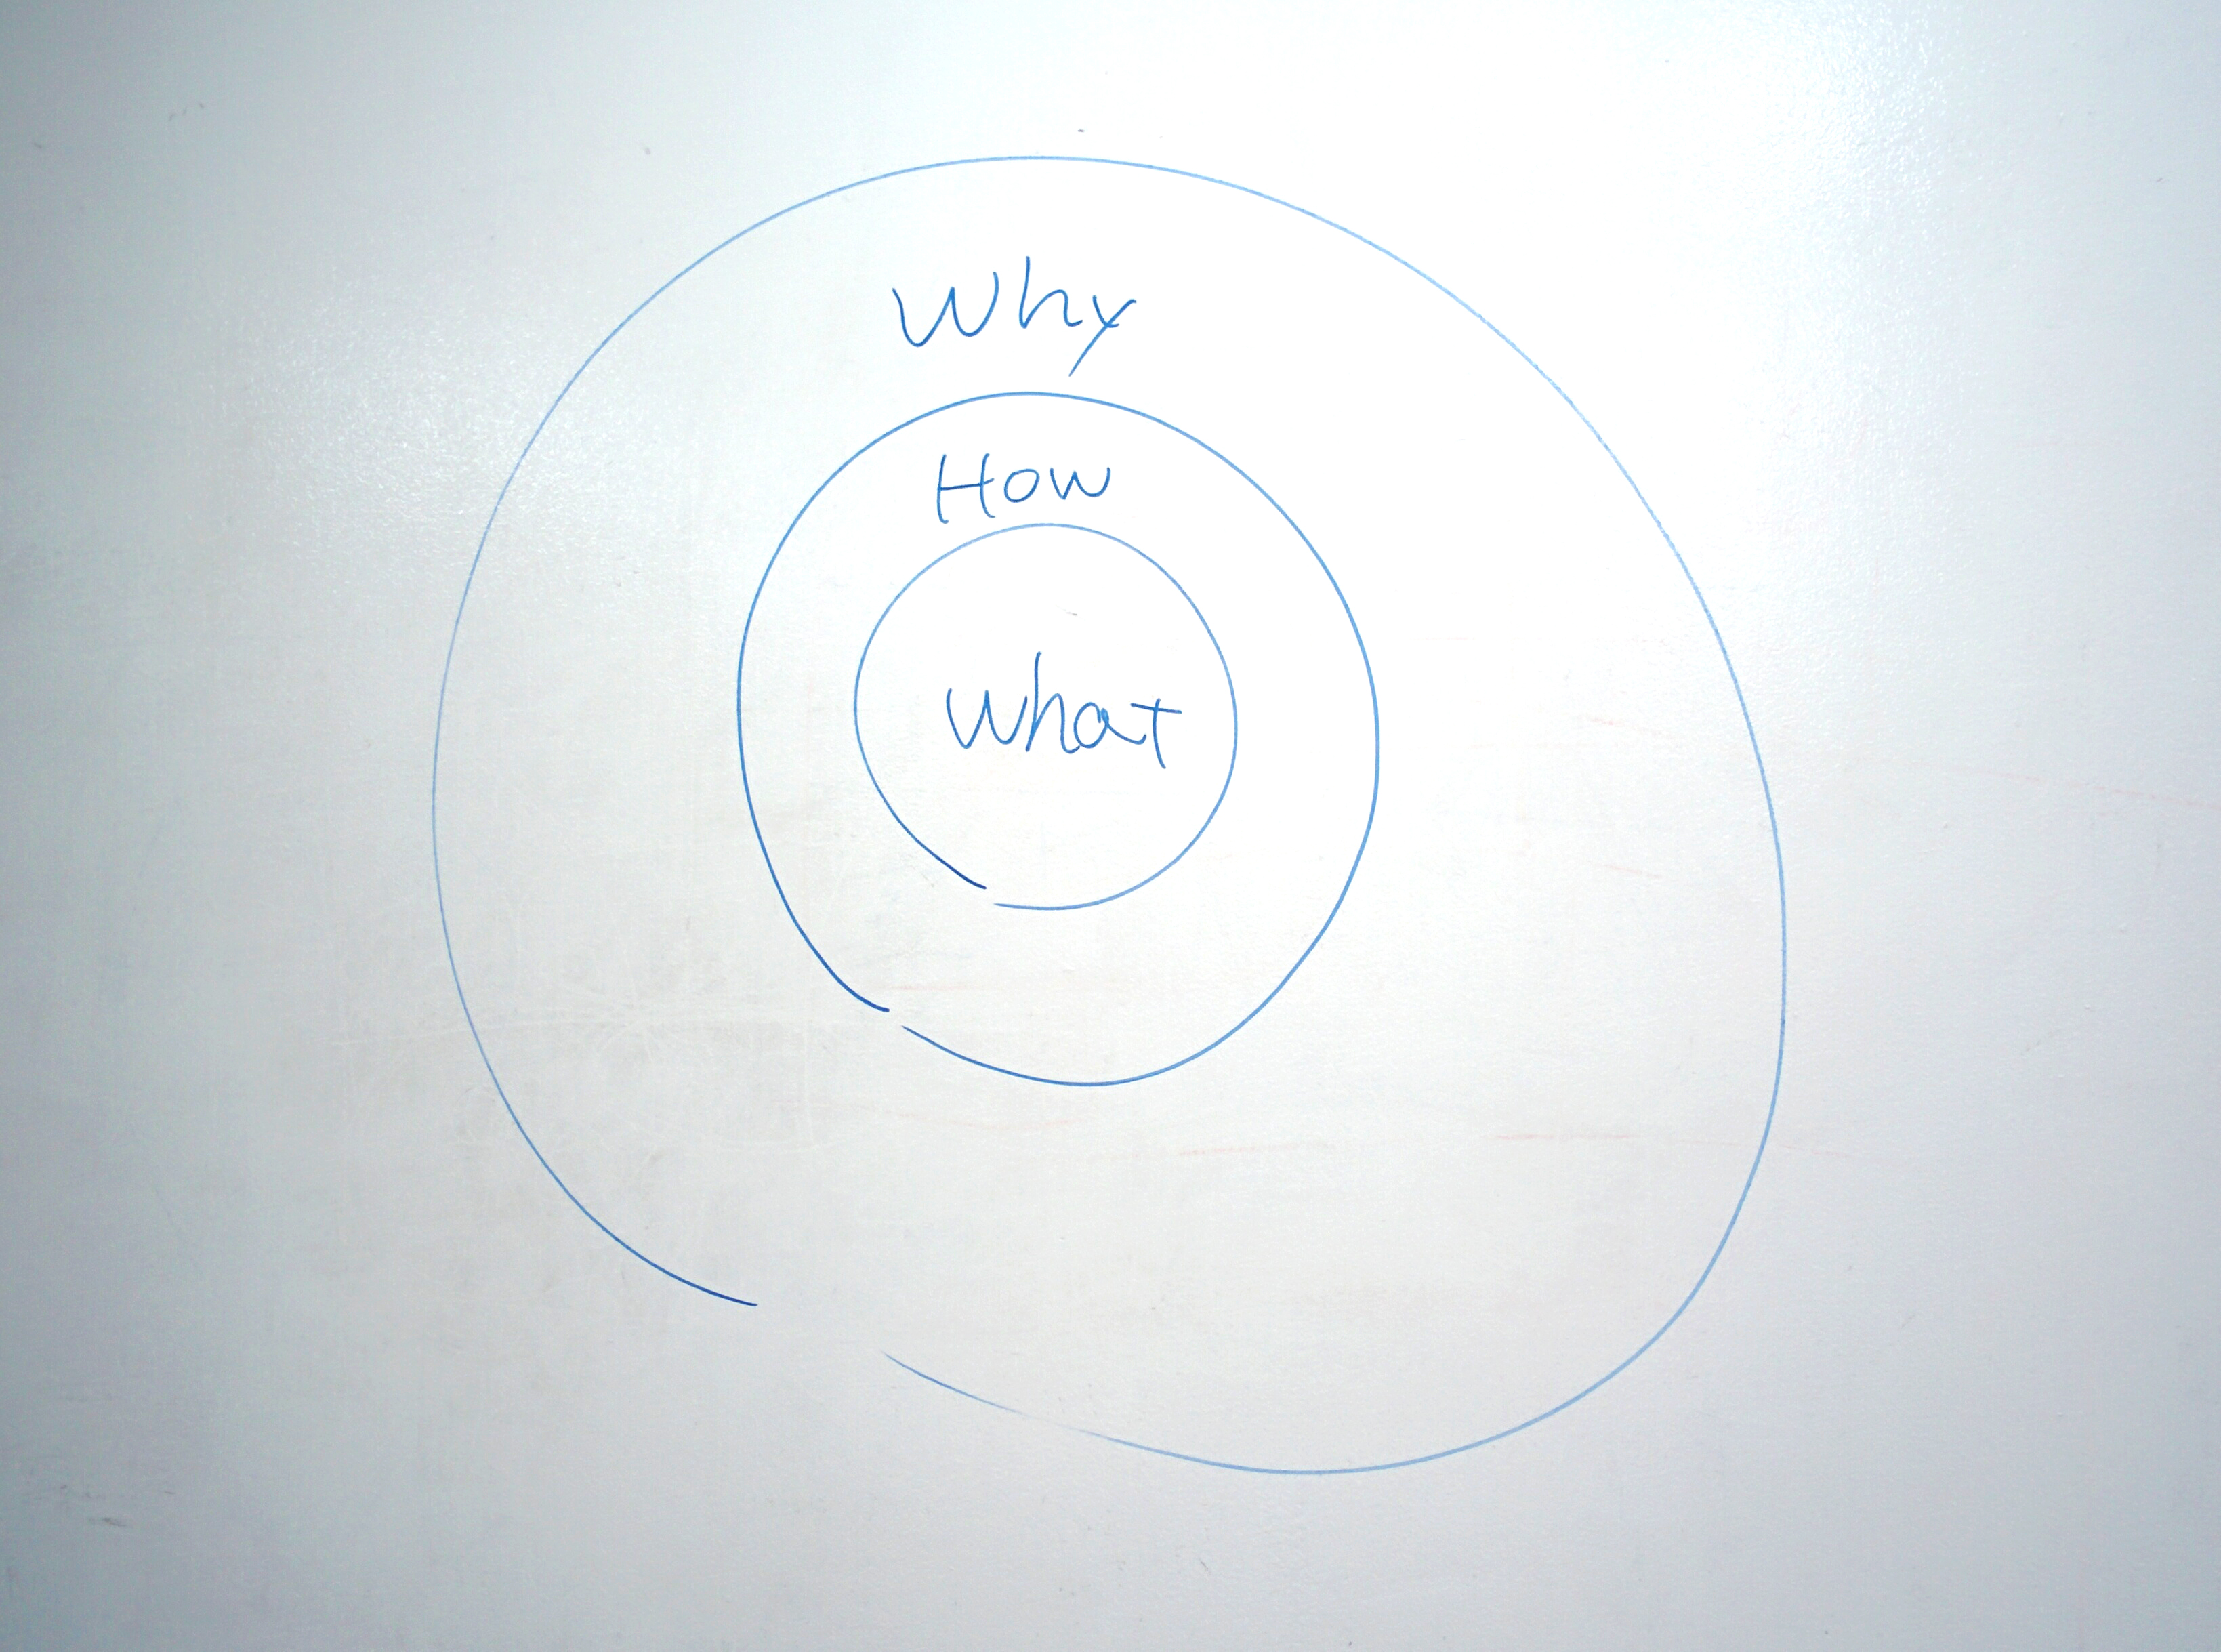 Why
How
What